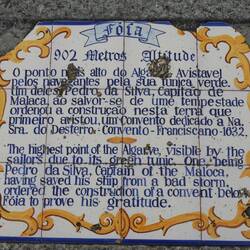 Fóia
902 Metros Altitude
O ponto mais alto do Algarve. Avistavel
pelos navegantes pela sua tunica verde.
Um deles Pedro da Silva, Capitão de
Malaca, ao salvar-se de uma tempestade
ordenou a construção nesta terra que
primeiro avistou, um convento dedicado a Na.
Sra. do Desterro. Convento-Franciscano-1632.
The highest point of the Algarve, visible by the
sailors due to its green tunic. One, being
Pedro da Silva, Captain of the Maloca,
having saved his ship from a bad storm,
ordered the constrution of a convent below
Fóia to prove his gratitude.